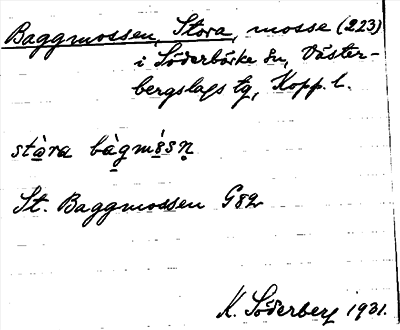 Baggmossen, Stora, mosse (223)
i Söderbärke sn, Väster-
bergslags tg, Kopp. l.
stòra bàgmósn̥
St. Baggmossen G82
K. Söderberg 1931.